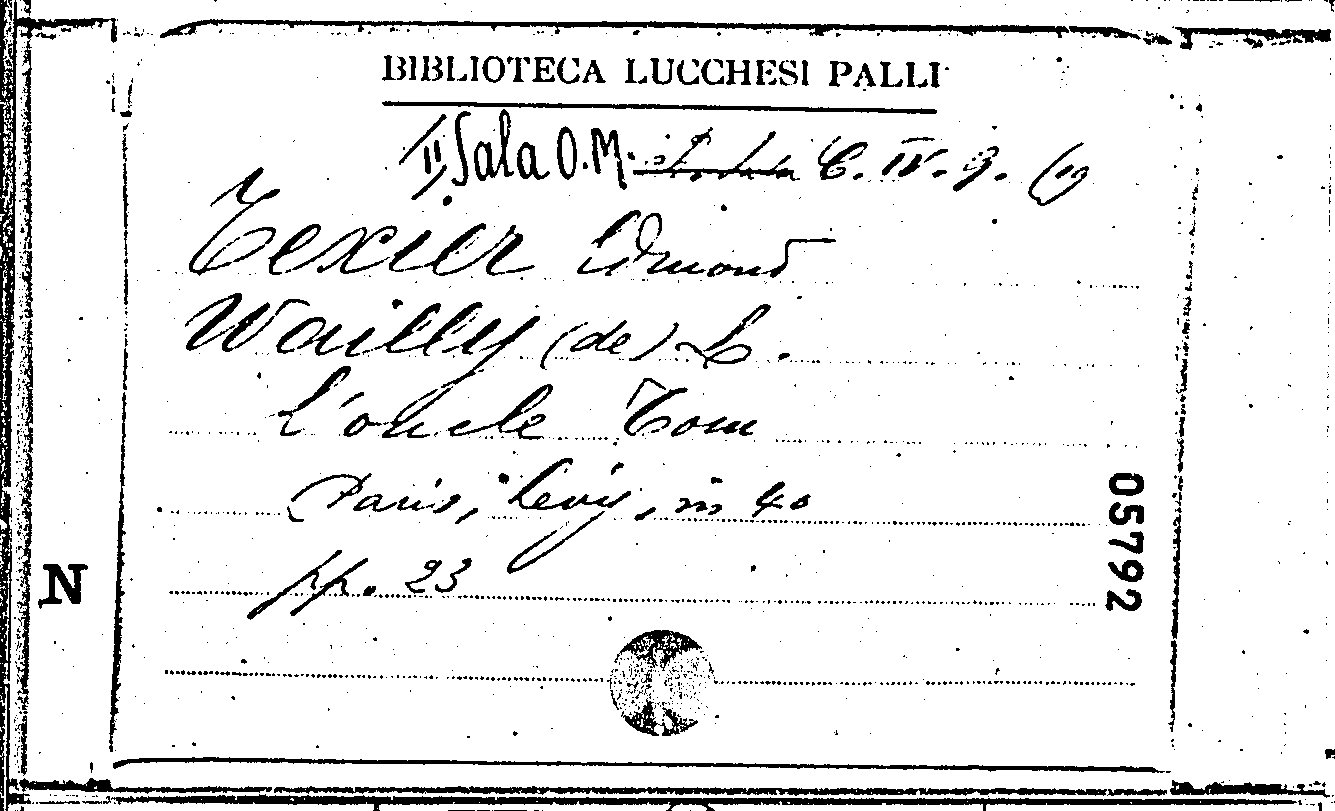 BIBLIOTECA LUCCHESI PALLI
II Sala O.M. C. IV. 9. (19
Texier Edmond
Wailly (de) L.
L'oncle Tom
Paris, Levy, in 4o
pp. 23
05792
N